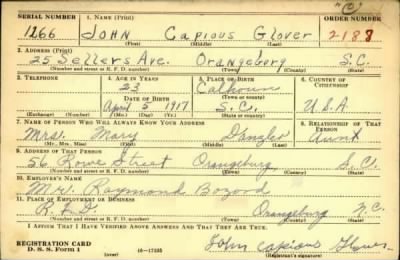 "C"
SERIAL NUMBER 1. NAME (Print) ORDER NUMBER
1266 JOHN Capious Glover 2188
(First) (Middle) (Last)
2. ADDRESS (Print)
25 Sellers Ave. Orangeburg S.C.
(Number and street or R. F. D. number) (Town) (County) (State)
3. TELEPHONE 4. AGE IN YEARS 5. PLACE OF BIRTH 6. COUNTRY OF CITIZENSHIP
23 Calhoun
DATE OF BIRTH (Town or county)
April 5 1917 S.C. U.S.A
(Exchange) (Number) (Mo.) (Day) (Yr.) (State or country)
7. NAME OF PERSON WHO WILL ALWAYS KNOW YOUR ADDRESS 8. RELATIONSHIP OF THAT PERSON
Mrs. Mary Danzler Aunt
(Mr., Mrs., Miss) (First) (Middle) (Last)
9. ADDRESS OF THAT PERSON
56 Rowe Street Orangeburg S.C.
(Number and street or R. F. D. number) (Town) (County) (State)
10. EMPLOYER'S NAME
Mr. Raymond Bozard
11. PLACE OF EMPLOYMENT OR BUSINESS
Orangeburg
(Number and street or R. F. D. number) (Town) (County) (State)
I AFFIRM THAT I HAVE VERIFIED ABOVE ANSWERS AND THAT THEY ARE TRUE.
REGISTRATION CARD
D. S. S. Form 1 (over) John Capious Glover
(Registrant's signature)